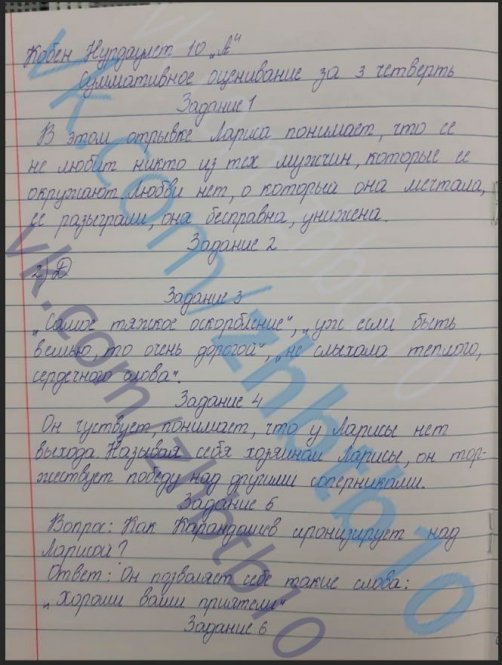 Кобен Нурдаулет 10 „А"
Суммативное оценивание за 3 четверть
Задание 1
В этом отрывке Лариса понимает, что ее
не любит никто из тех мужчин, которые ее
окружают любви нет, о который она мечтала,
ее разыграли, она бесправна, унижена.
Задание 2
2) Д
Задание 3
„Самое тяжкое оскорбление", „уж если быть
вещью, то очень дорогой", „не слыхала теплого,
сердечного слова".
Задание 4
Он чуствует, понимает, что у Ларисы нет
выхода. Называя себя хозяином Ларисы, он тор-
жествует победу над другими соперниками.
Задание 5
Вопрос: Как Карандышев иронизирует над
Ларисой?
Ответ: Он позволяет себе такие слова:
„Хороши ваши приятели"
Задание 6
vk.com/zhbtblo
vk.com/zhbtblo